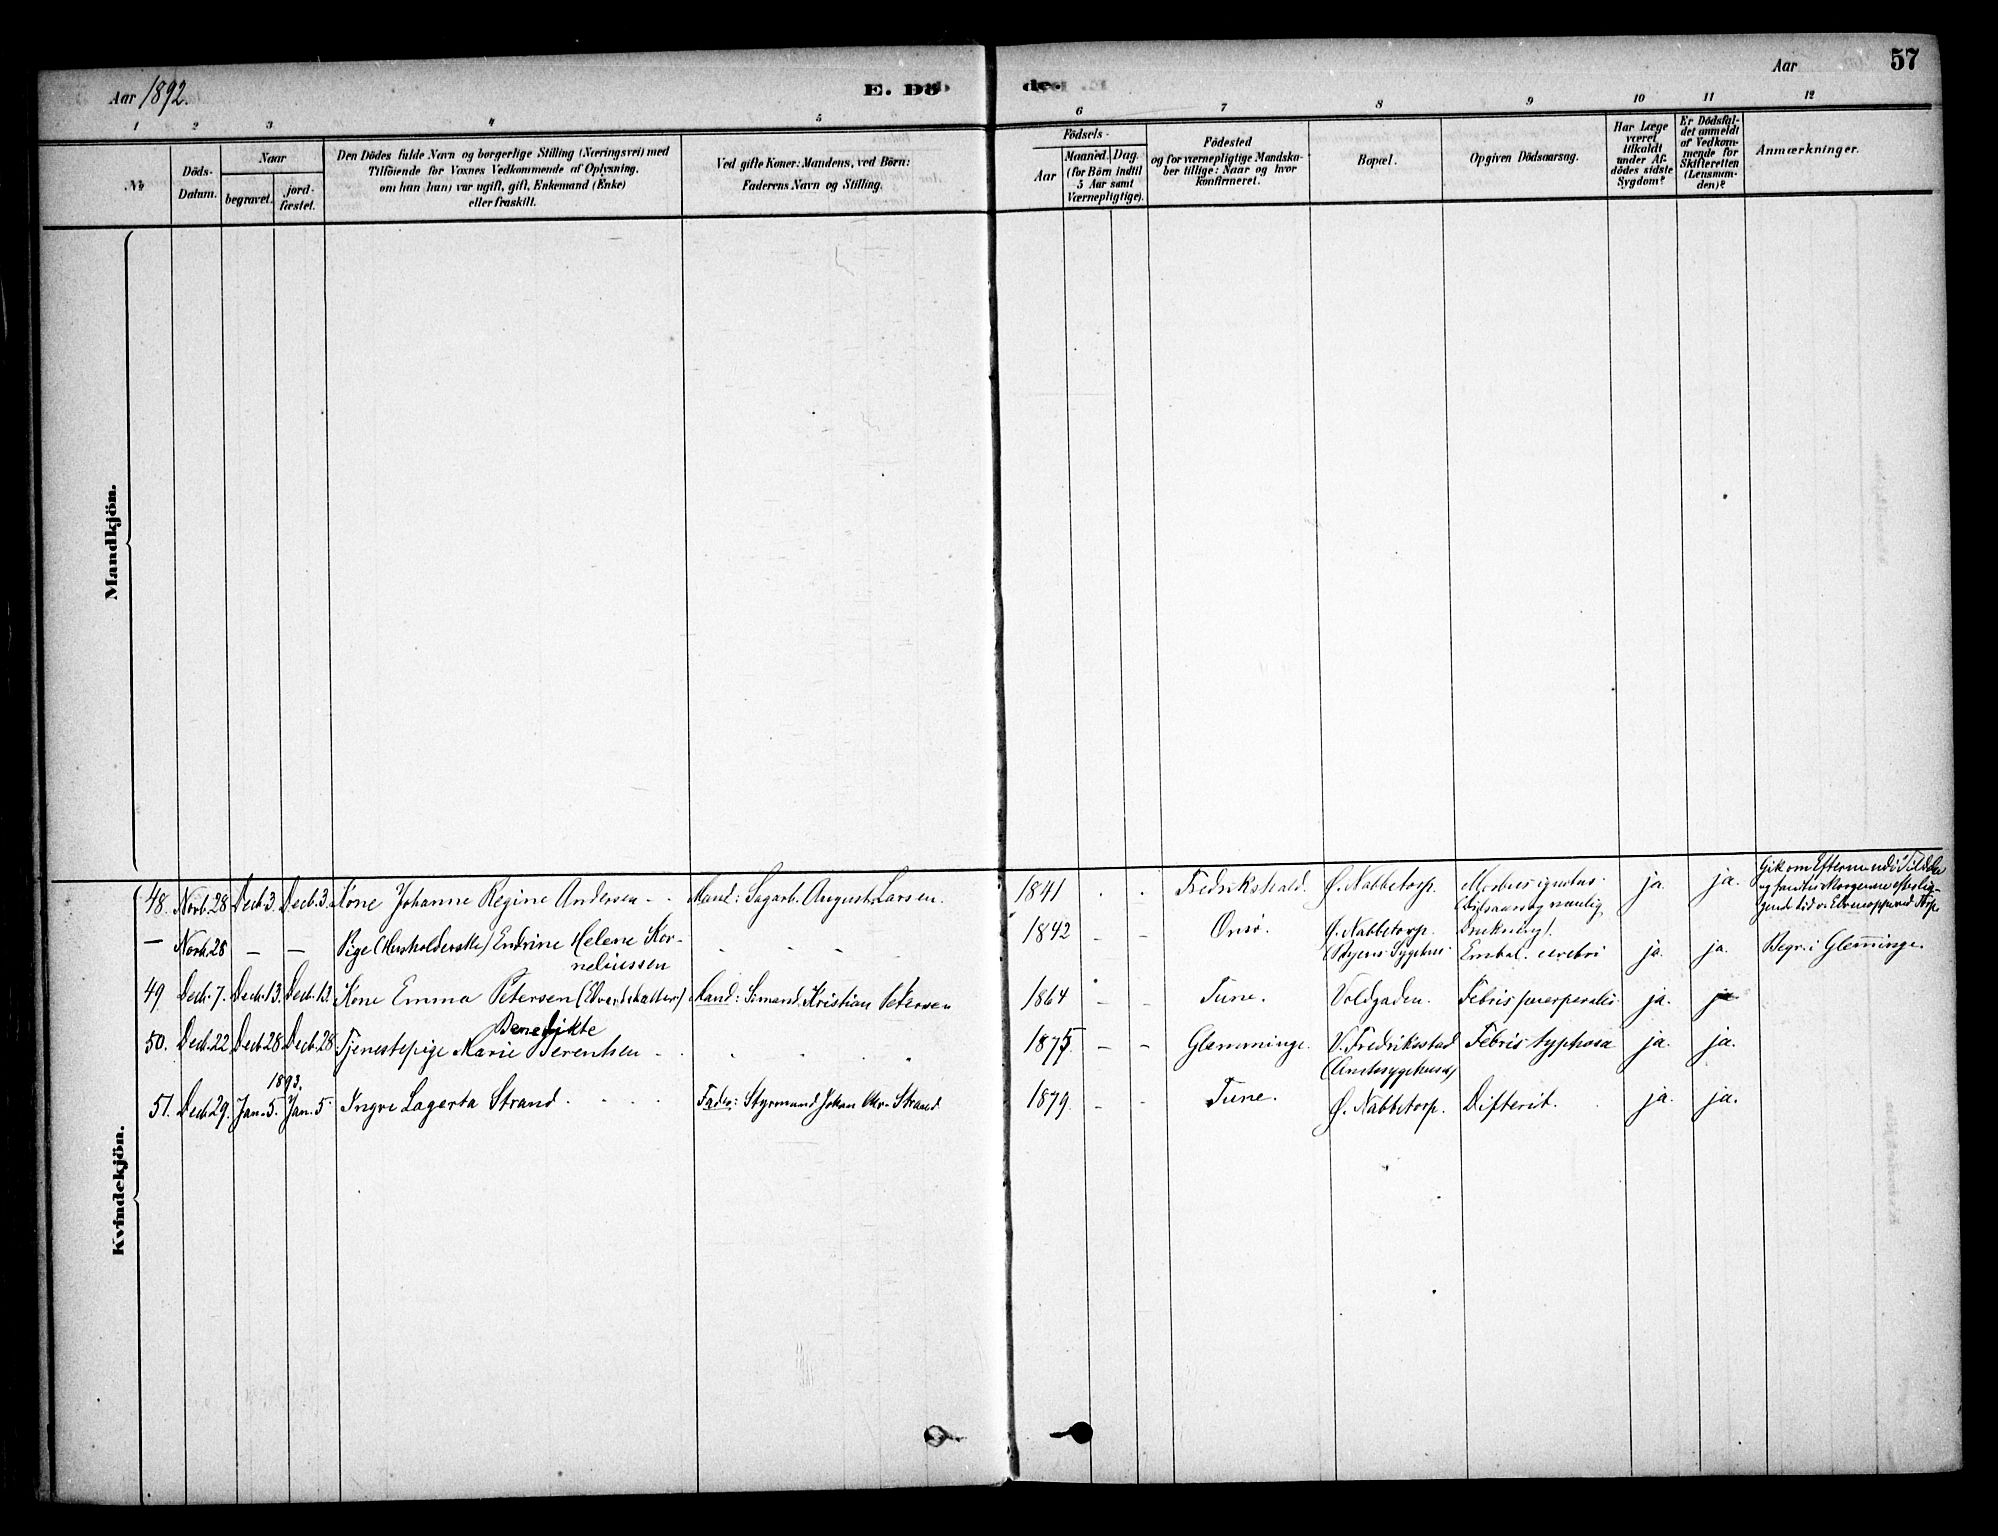 Aar 1892.
E. Dö
de.
Aar
57
1
2
3
4
5
6
7
8
9
10
11
12
No
Döds-
Datum.
Naar
begravet.
jord-
fæstet.
Den Dödes fulde Navn og borgerlige Stilling (Næringsvei) med
Tilföiende for Voxnes Vedkommende af Oplysning,
om han (hun) var ugift, gift, Enkemand (Enke)
eller fraskilt.
Ved gifte Koner: Mandens, ved Börn:
Faderens Navn og Stilling.
Födsels-
Aar
Maaned. Dag.
(for Börn indtil
5 Aar samt
Værnepligtige).
Födested
og for værnepligtige Mandska-
ber tillige: Naar og hvor
konfirmeret.
Bopæl.
Opgiven Dödsaarsag.
Har Læge
været
tilkaldt
under Af-
dödes sidste
Sygdom?
Er Dödsfal-
det anmeldt
af Vedkom-
mende for
Skifteretten
(Lensman-
den)?
Anmærkninger.
Mandkjön.
Kvindekjön.
48. Novb. 28 Decb. 3. Decb. 3. Kone Johanne Regine Andersen - - Mand: Sagarb. August Larsen. 1841 Fredrikshald. Ø. Nabbetorp. Morbus ignotus. ja. ja.
(Dödsaarsag nemlig
drukning).
— Novb. 28 — — Pige (Husholderske) Endrine Helene Kor-
neliussen 1842 - - Onsø. Ø. Nabbetorp. Embol. cerebri ja. ja. Begr. i Glemminge.
49. Decb. 7. Decb. 13. Decb. 13 Kone Emma Petersen Mand: Sömand Kristian Petersen 1864 - - Tune. Voldgaden. Febris puerperalis. ja. ja
Benedikte
50. Decb. 22 Decb. 28. Decb. 28. Tjenestepige Marie Berentsen - 1875 - - Glemminge. V. Fredriksstad Febris typhosa ja. ja.
(Amtssygehuset)
1893.
51. Decb. 29. Jan. 5. Jan. 5 Ingre Lagerta Strand Fader: Styrmand Johan Chr. Strand 1879. - - Tune. Ø. Nabbetorp. Difterit. ja. ja.